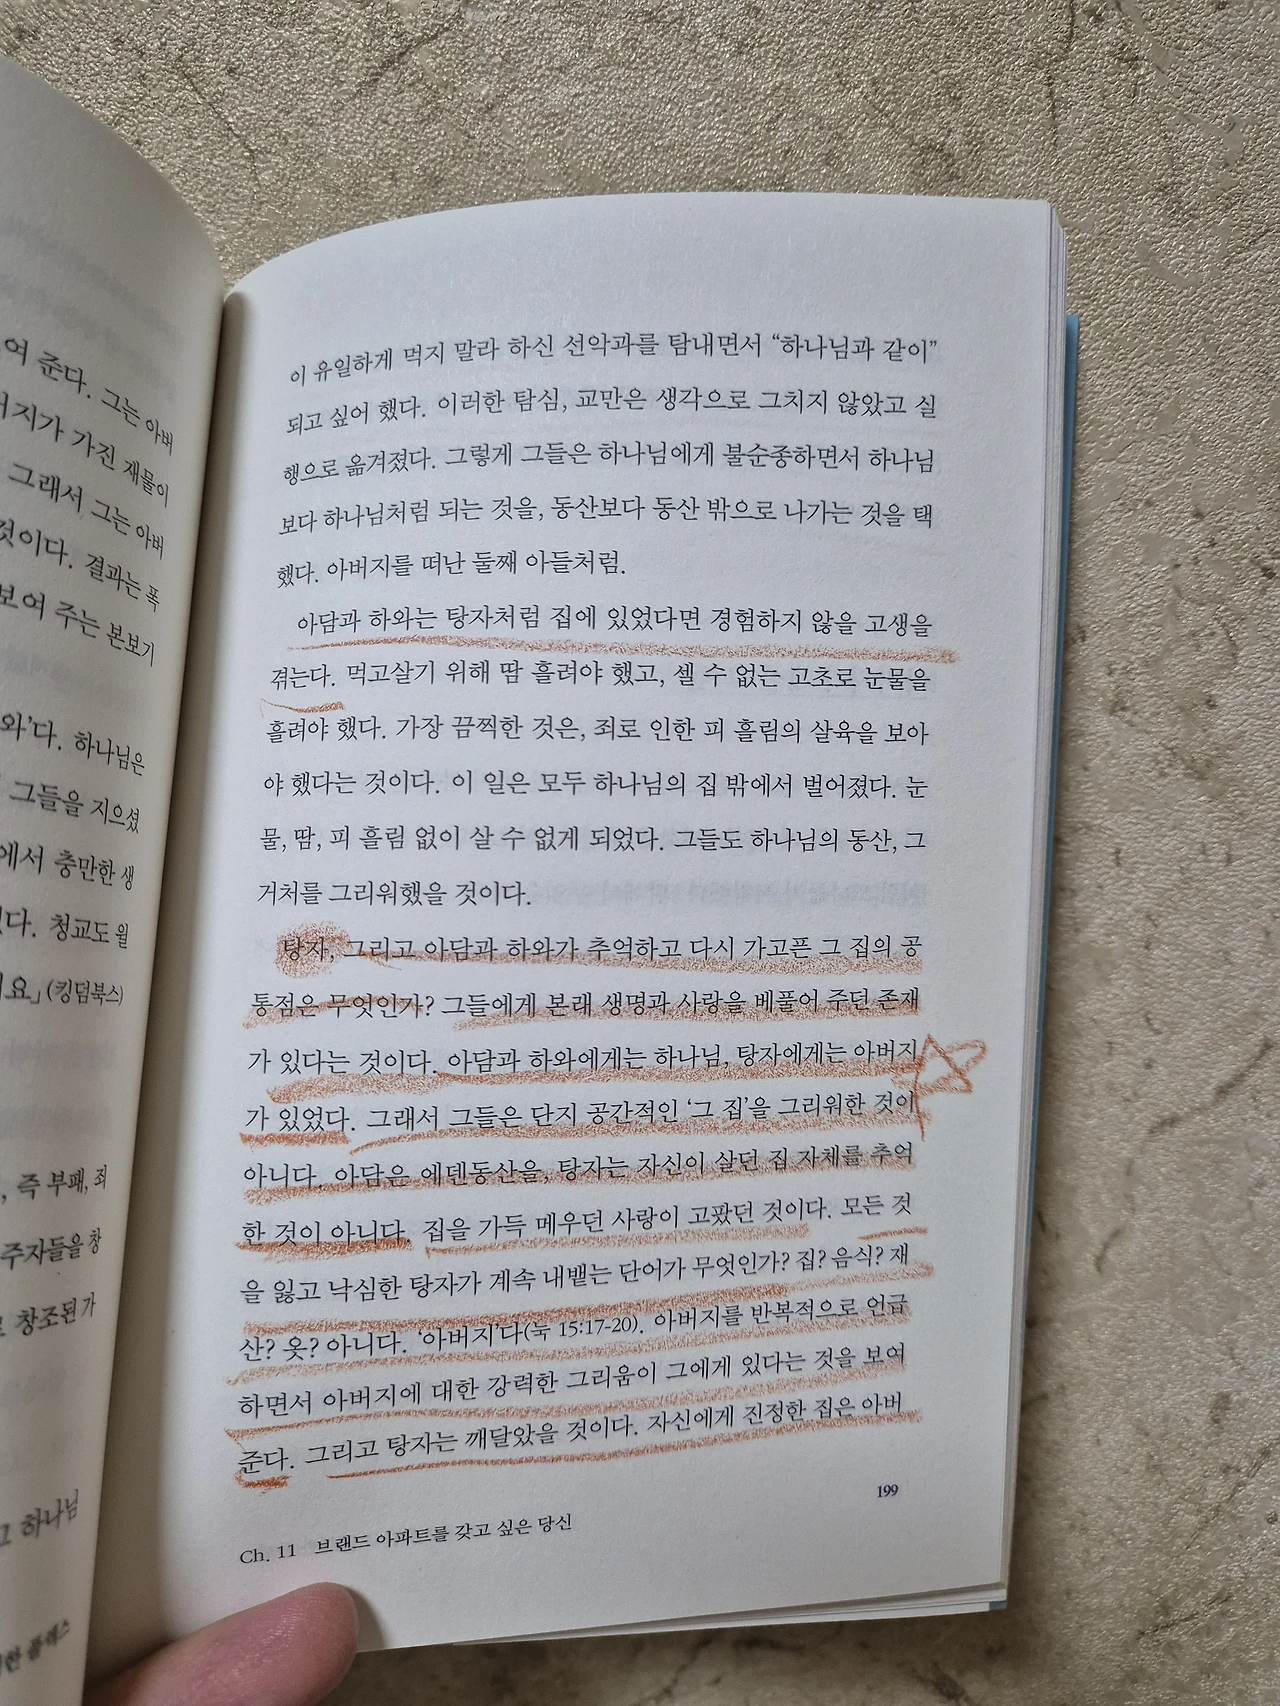 여 준다. 그는 아버
지가 가진 재물이
그래서 그는 아버
것이다. 결과는 폭
보여 주는 본보기
와'다. 하나님은
그들을 지으셨
에서 충만한 생
다. 청교도 윌
요」(킹덤북스)
, 즉 부패, 죄
주자들을 창
창조된 가
고 하나님
이 유일하게 먹지 말라 하신 선악과를 탐내면서 “하나님과 같이”
되고 싶어 했다. 이러한 탐심, 교만은 생각으로 그치지 않았고 실
행으로 옮겨졌다. 그렇게 그들은 하나님에게 불순종하면서 하나님
보다 하나님처럼 되는 것을, 동산보다 동산 밖으로 나가는 것을 택
했다. 아버지를 떠난 둘째 아들처럼.
아담과 하와는 탕자처럼 집에 있었다면 경험하지 않을 고생을
겪는다. 먹고살기 위해 땀 흘려야 했고, 셀 수 없는 고초로 눈물을
흘려야 했다. 가장 끔찍한 것은, 죄로 인한 피 흘림의 살육을 보아
야 했다는 것이다. 이 일은 모두 하나님의 집 밖에서 벌어졌다. 눈
물, 땀, 피 흘림 없이 살 수 없게 되었다. 그들도 하나님의 동산, 그
거처를 그리워했을 것이다.
탕자, 그리고 아담과 하와가 추억하고 다시 가고픈 그 집의 공
통점은 무엇인가? 그들에게 본래 생명과 사랑을 베풀어 주던 존재
가 있다는 것이다. 아담과 하와에게는 하나님, 탕자에게는 아버지
가 있었다. 그래서 그들은 단지 공간적인 ‘그 집’을 그리워한 것이
아니다. 아담은 에덴동산을, 탕자는 자신이 살던 집 자체를 추억
한 것이 아니다. 집을 가득 메우던 사랑이 고팠던 것이다. 모든 것
을 잃고 낙심한 탕자가 계속 내뱉는 단어가 무엇인가? 집? 음식? 재
산? 옷? 아니다. ‘아버지’다(눅 15:17-20). 아버지를 반복적으로 언급
하면서 아버지에 대한 강력한 그리움이 그에게 있다는 것을 보여
준다. 그리고 탕자는 깨달았을 것이다. 자신에게 진정한 집은 아버
199
Ch. 11 브랜드 아파트를 갖고 싶은 당신